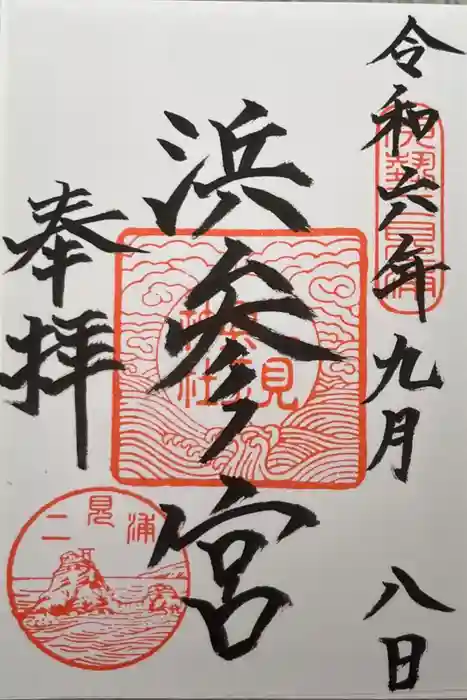 令和六年九月八日
伊勢二見浦
浜参ノ宮
二見興玉神社
奉拝
二見浦